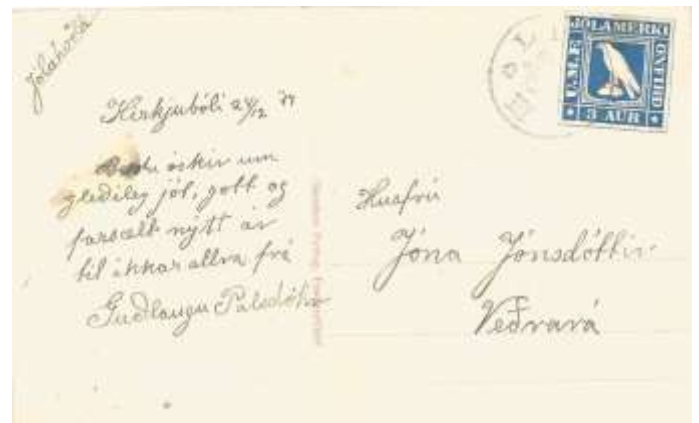 Jólakvöld
Kirkjubóli 24/12
Bestu óskir um
gleðileg jól, gott og
farsælt nýtt ár
til ykkar allra frá
Guðlaugu Pálsdóttir
JÓLAMERKI
U.M.F.
ÖNFIRÐ
5 AUR
Húsfrú
Jóna Jónsdóttir
Veðrará